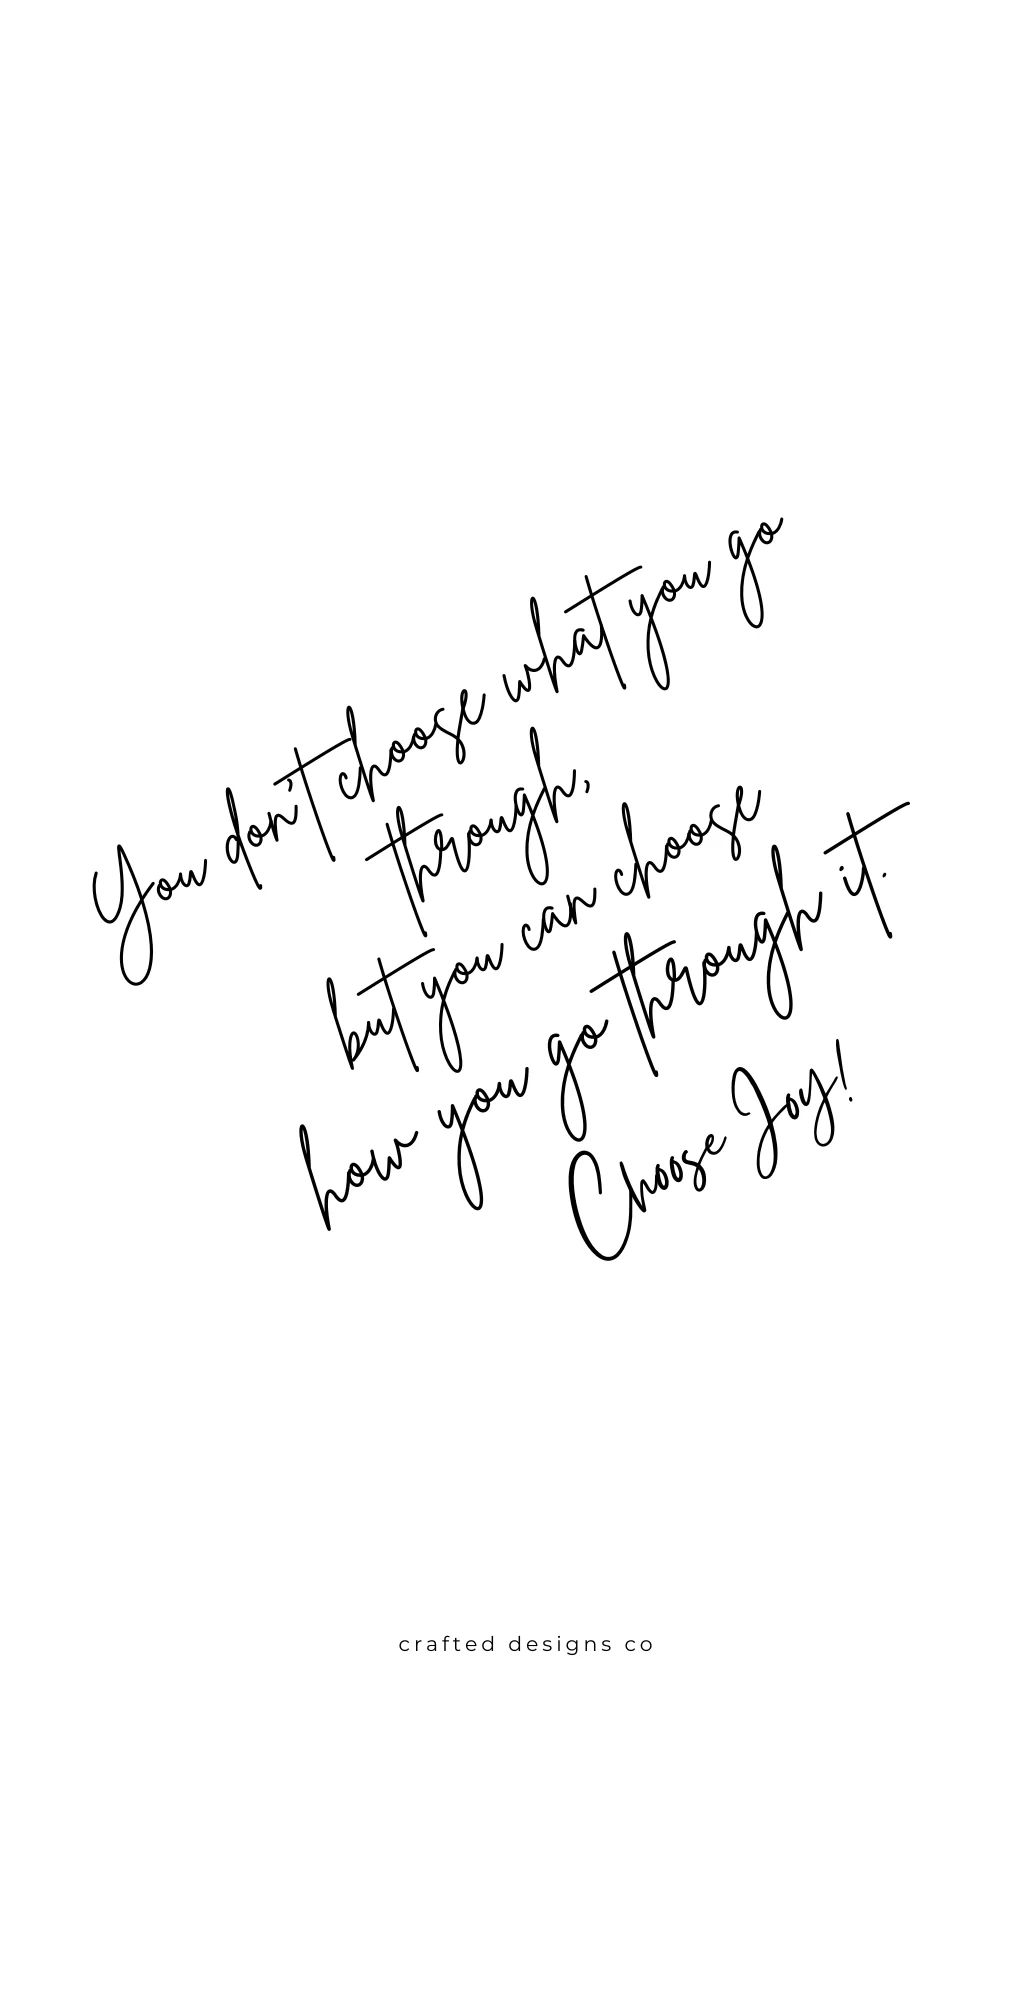 You don't choose what you go
through,
but you can choose
how you go through it.
Choose Joy!
crafted designs co